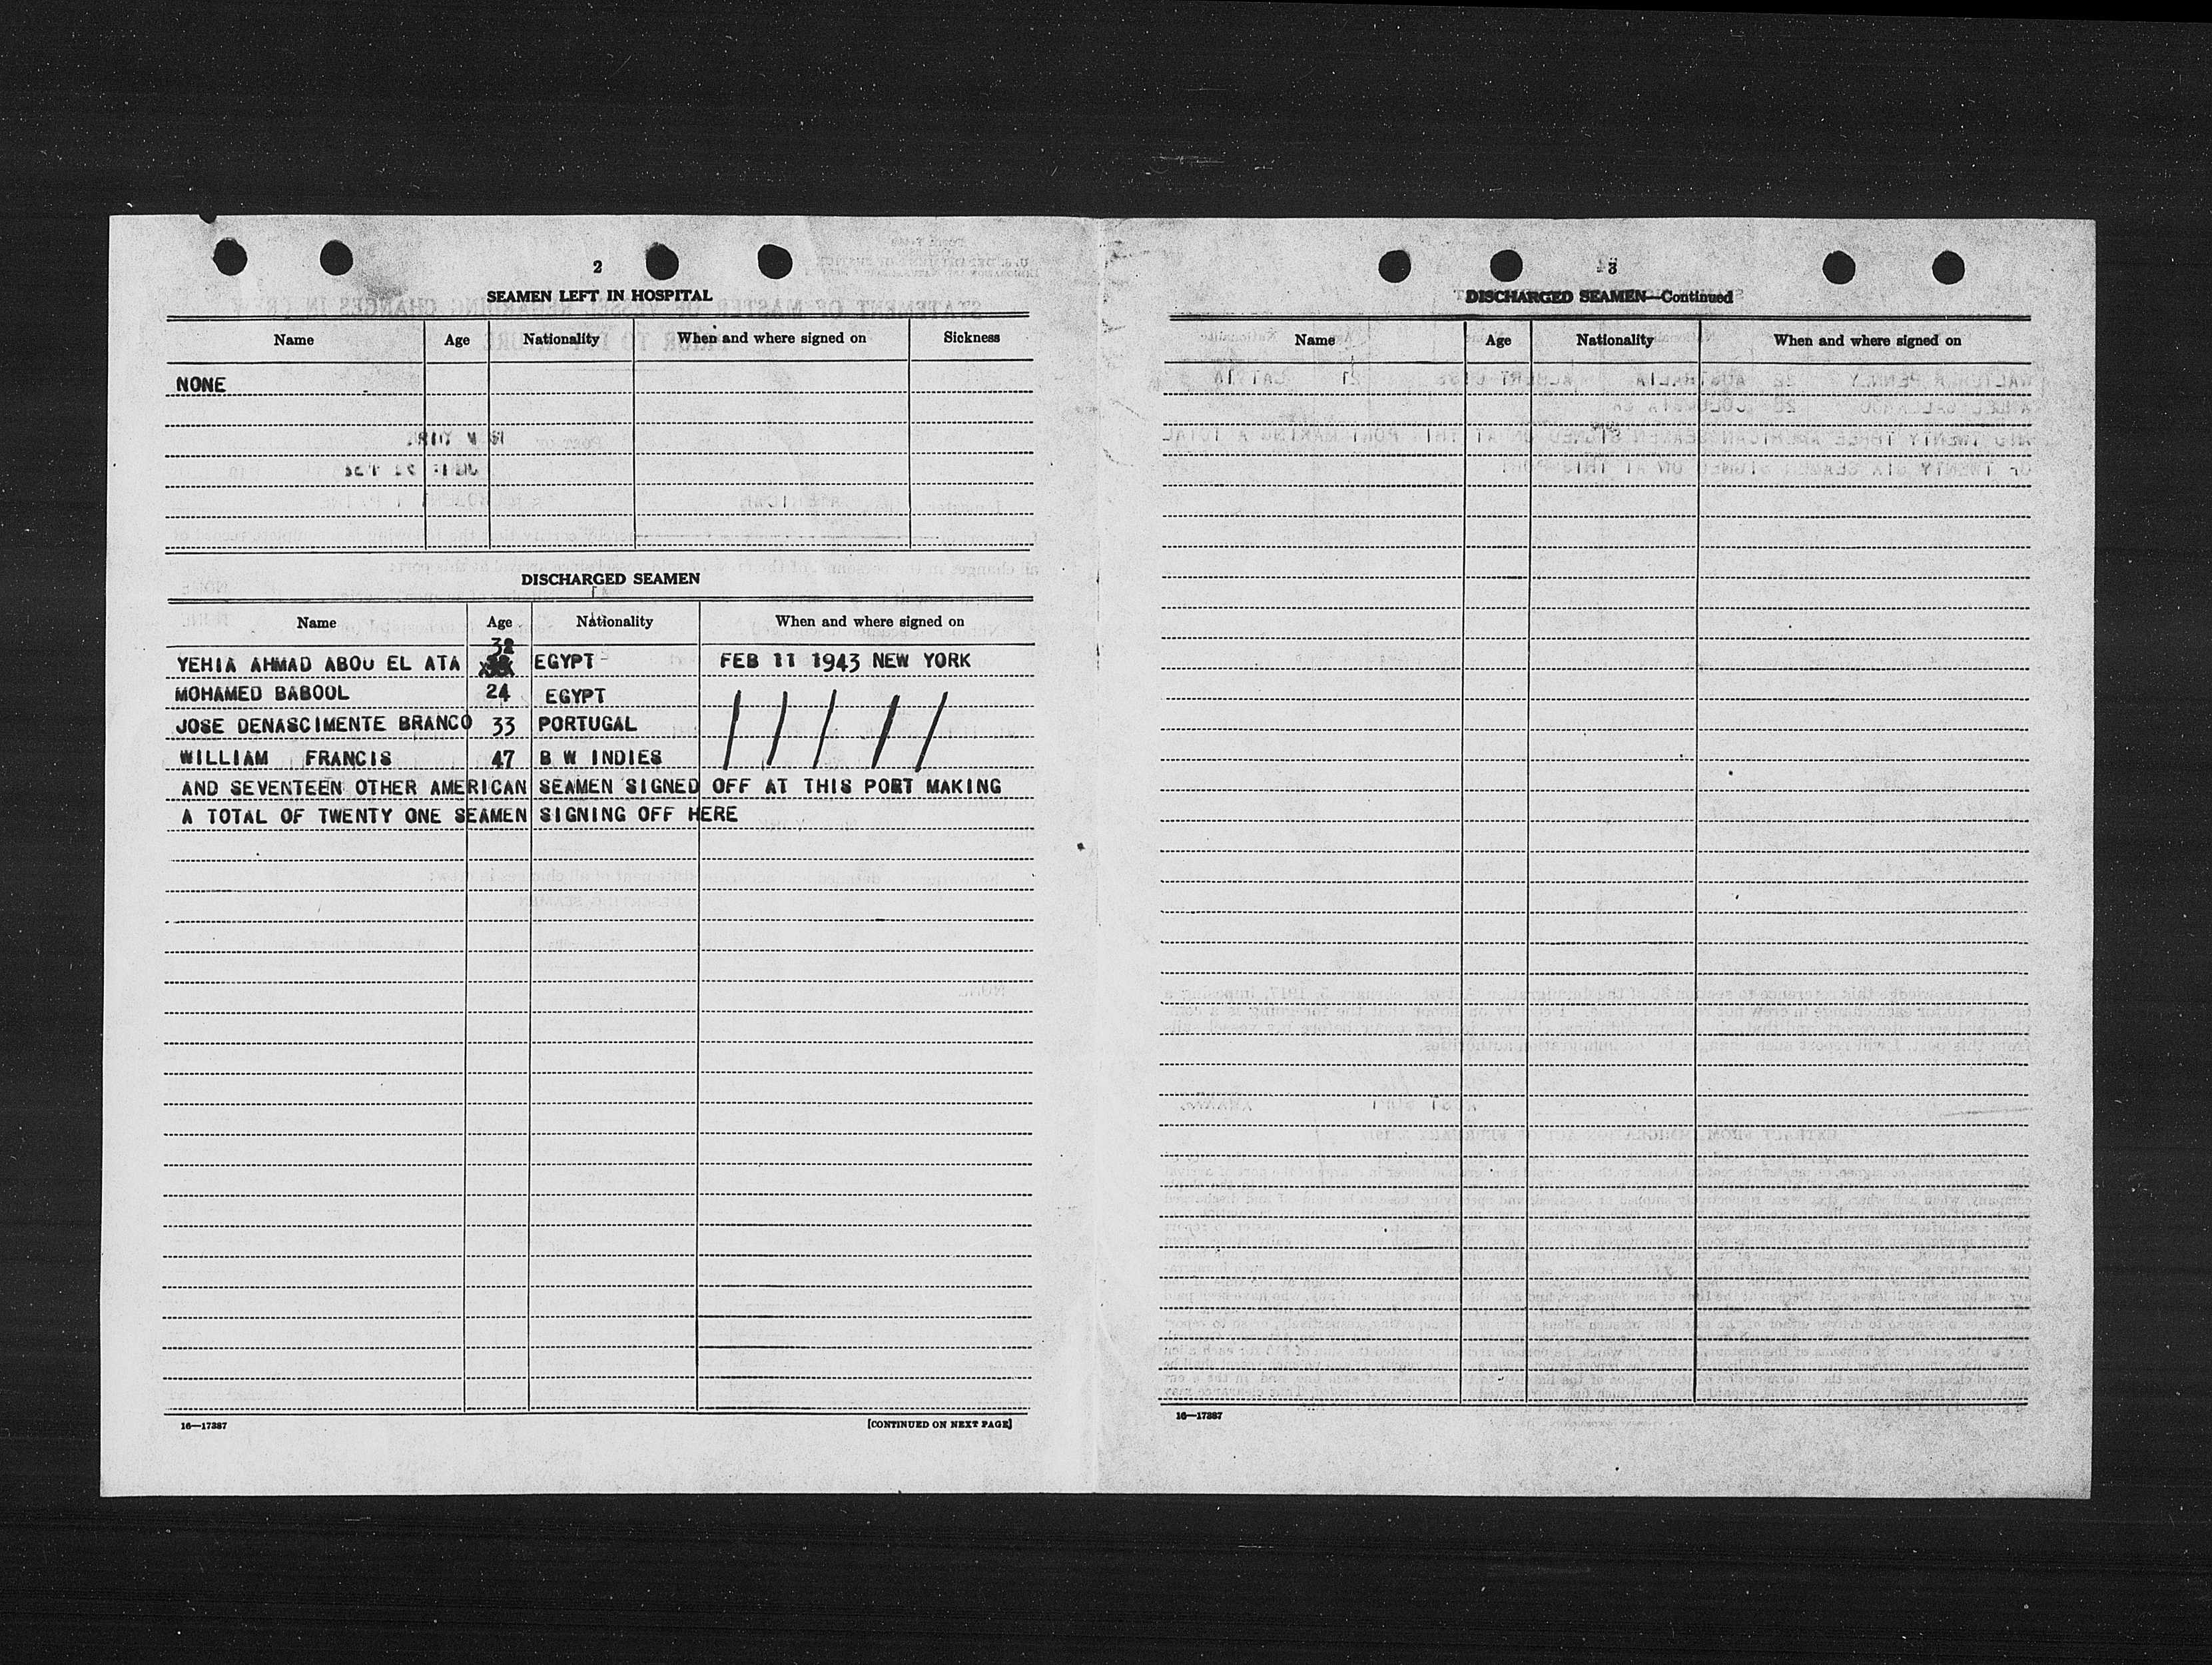 2
SEAMEN LEFT IN HOSPITAL
Name Age Nationality When and where signed on Sickness
NONE
DISCHARGED SEAMEN
Name Age Nationality When and where signed on
32
YEHIA AHMAD ABOU EL ATA EGYPT FEB 11 1943 NEW YORK
MOHAMED BABOOL 24 EGYPT
JOSE DENASCIMENTE BRANCO 33 PORTUGAL
WILLIAM FRANCIS 47 B W INDIES
AND SEVENTEEN OTHER AMERICAN SEAMEN SIGNED OFF AT THIS PORT MAKING
A TOTAL OF TWENTY ONE SEAMEN SIGNING OFF HERE
16—17387 [CONTINUED ON NEXT PAGE]
3
DISCHARGED SEAMEN—Continued
Name Age Nationality When and where signed on
16—17387